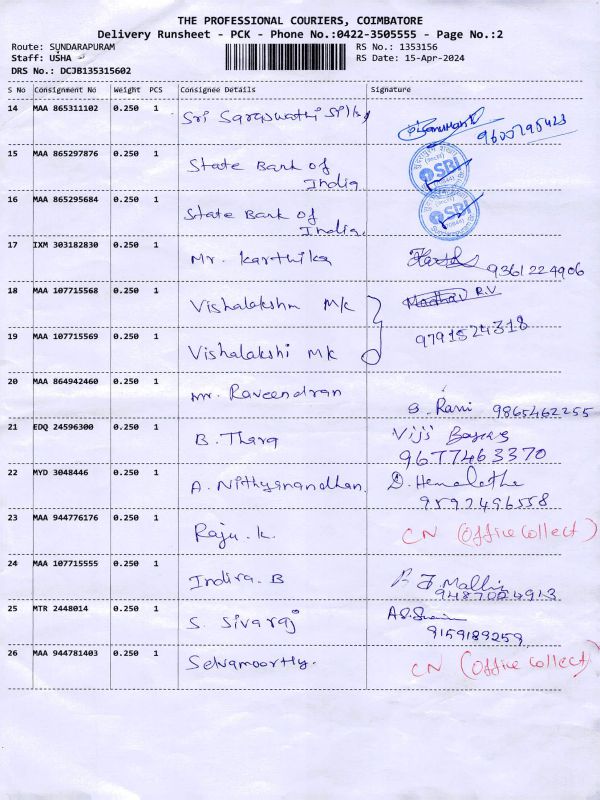 THE PROFESSIONAL COURIERS, COIMBATORE
Delivery Runsheet - PCK - Phone No.:0422-3505555 - Page No.:2
Route: SUNDARAPURAM RS No.: 1353156
Staff: USHA RS Date: 15-Apr-2024
DRS No.: DCJB135315602
S No Consignment No Weight PCS Consignee Details Signature
14 MAA 865311102 0.250 1 Sri Saraswathi Silks
15 MAA 865297876 0.250 1 State Bank of
India SBI
16 MAA 865295684 0.250 1 State Bank of
India. SBI
17 IXM 303182830 0.250 1 Mr. Karthika 9361224906
18 MAA 107715568 0.250 1 Vishalakshi MK Madhav R.V
9791524318
19 MAA 107715569 0.250 1 Vishalakshi MK
20 MAA 864942460 0.250 1 Mr. Raveendran S. Rani 9865462255
21 EDQ 24596300 0.250 1 B. Thara Viji
9677463370
22 MYD 3048446 0.250 1 A. Nithyanandhan. D. Hemalatha
9597496558
23 MAA 944776176 0.250 1 Raju. K. CN (Office collect)
24 MAA 107715555 0.250 1 Indira. B
25 MTR 2448014 0.250 1 S. Sivaraj
9159189259
26 MAA 944781403 0.250 1 Selvamoorthy. CN (Office collect)